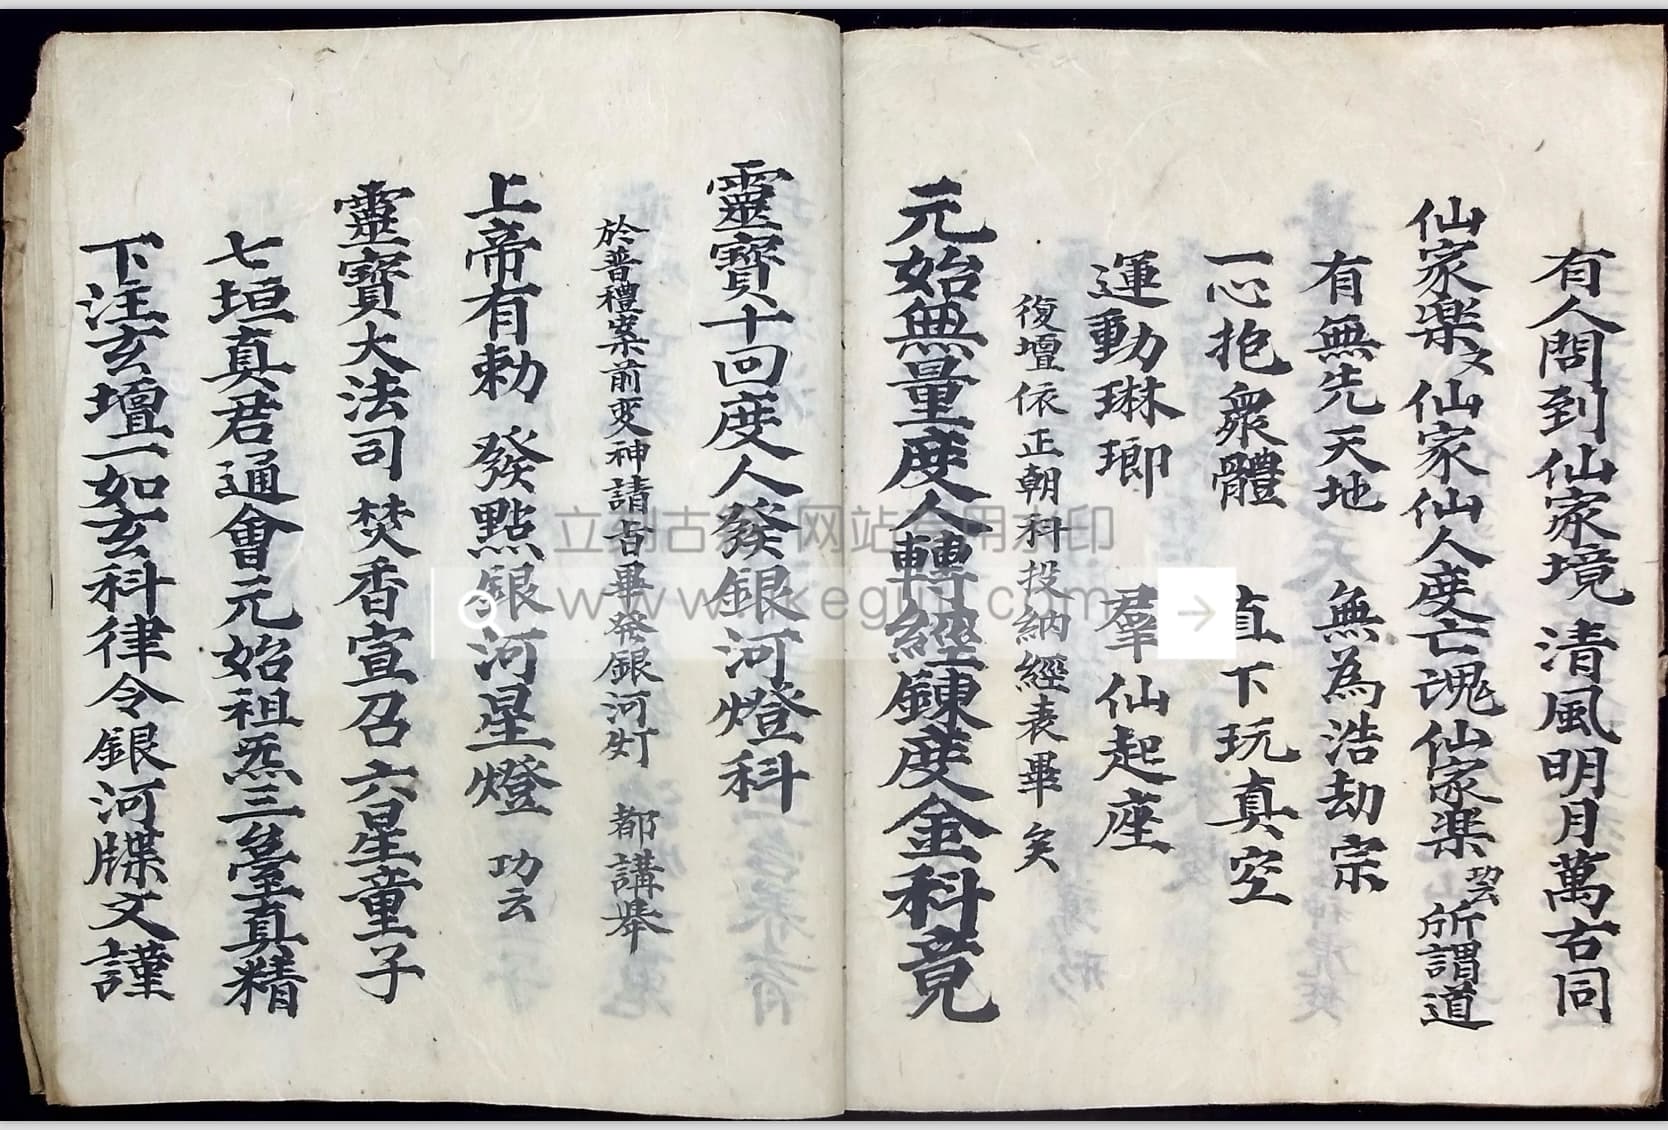 有人問到仙家境 清風明月萬古同
仙家楽文仙家仙人度亡魂仙家楽 功云 所謂道
有無先天地 無為浩劫宗
一心抱衆體 直下玩真空
運動琳瑯 羣仙起座
復壇依正朝科投納經表畢矣
元始無量度人轉經鍊度金科竟
靈寶十回度人發銀河燈科
於普禮案前变神請 畢發銀河灯 都講舉
上帝有勅 發點銀河星燈 功云
靈寶大法司 焚香宣召六星童子
七垣真君通會元始祖炁三臺真精
下注玄壇一如玄科律令銀河牒文謹
www. kegu .com